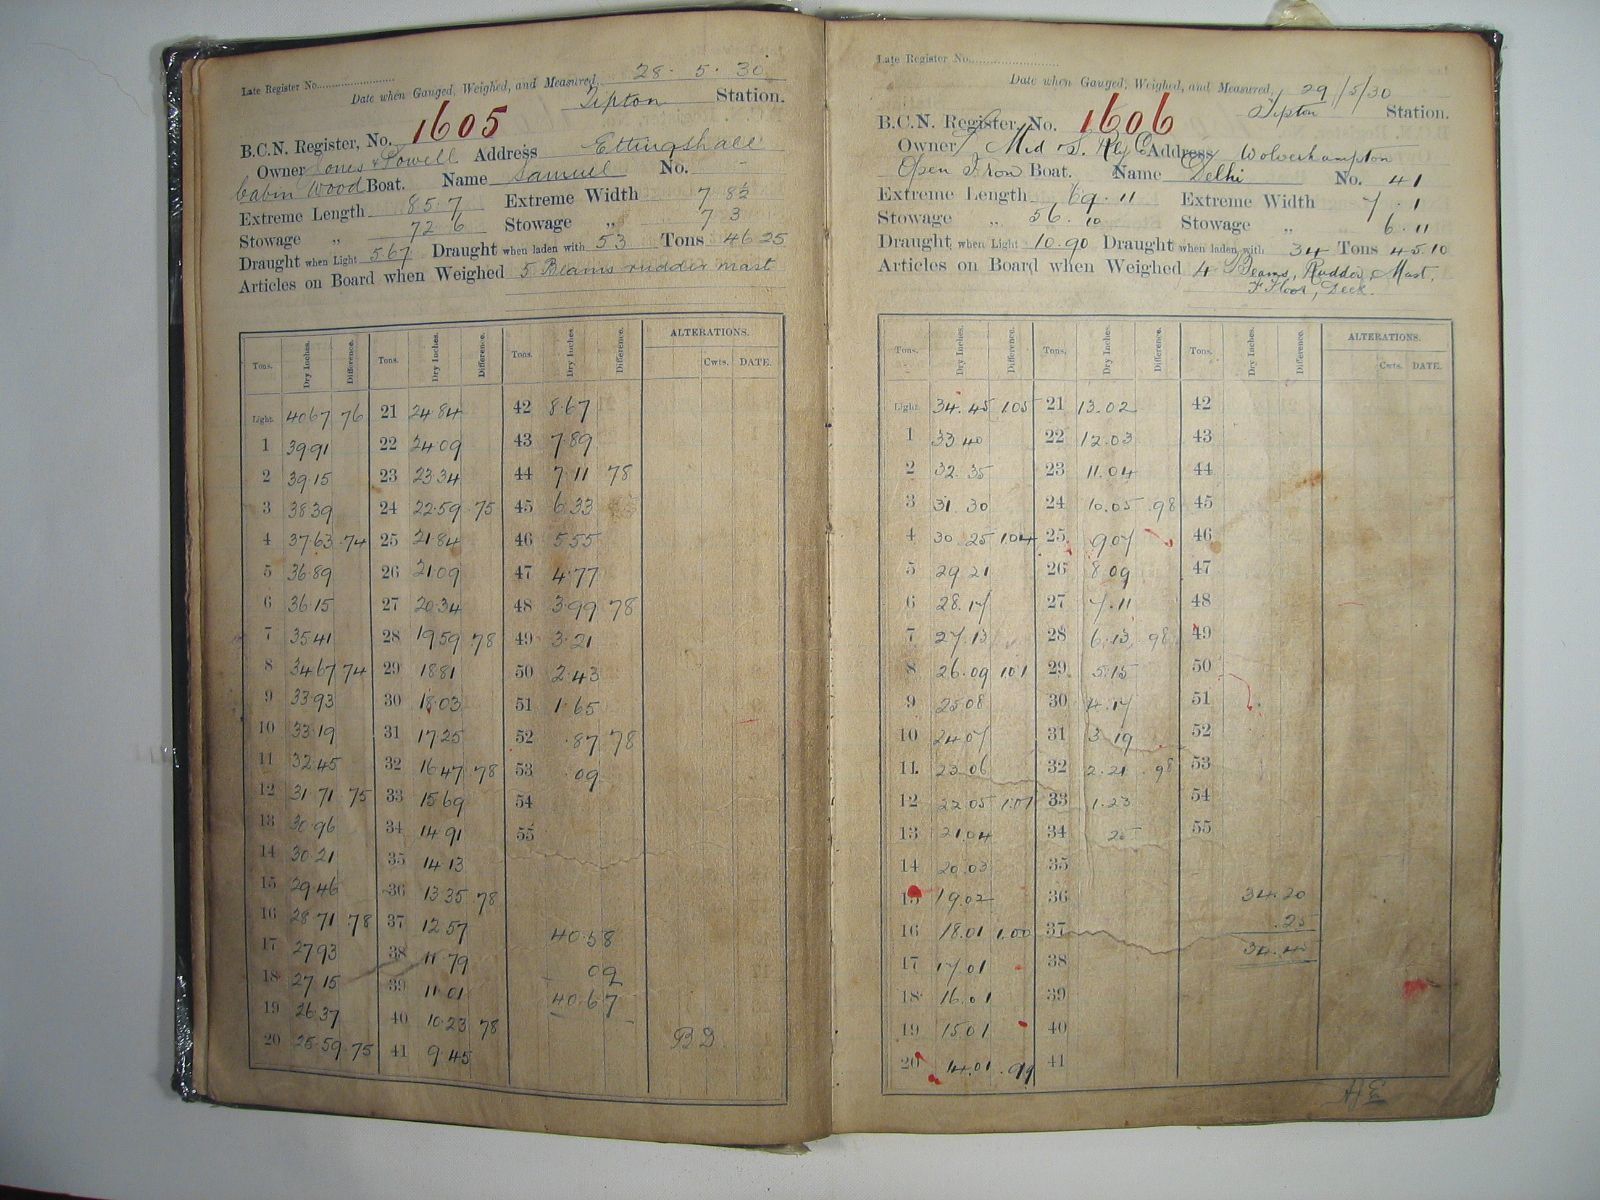 Late Register No.
Date when Gauged, Weighed, and Measured, 28 · 5 · 30
Tipton Station.
B.C.N. Register, No. 1605
Owner Jones & Powell Address Ettingshall
Cabin Wood Boat. Name Samuel No. -
Extreme Length 85·7 Extreme Width 7·8½
Stowage „ 72·6 Stowage „ 7·3
Draught when Light 5.67 Draught when laden with 53 Tons 46·25
Articles on Board when Weighed 5 Beams rudder mast
Tons. Dry Inches. Difference. Tons. Dry Inches. Difference. Tons. Dry Inches. Difference. ALTERATIONS.
Cwts. DATE.
Light. 40·67 76 21 24·84 42 8·67
1 39·91 22 24·09 43 7·89
2 39·15 23 23·34 44 7·11 78
3 38·39 24 22·59 ·75 45 6·33
4 37·63 ·74 25 21·84 46 5·55
5 36·89 26 21·09 47 4·77
6 36·15 27 20·34 48 3·99 78
7 35·41 28 19·59 ·78 49 3·21
8 34·67 74 29 18·81 50 2·43
9 33·93 30 18·03 51 1·65
10 33·19 31 17·25 52 ·87 78
11 32·45 32 16·47 78 53 ·09
12 31·71 75 33 15·69 54
13 30·96 34 14·91 55
14 30·21 35 14·13
15 29·46 36 13·35 78
16 28·71 ·78 37 12·57 40·58
17 27·93 38 11·79 09
18 27·15 39 11·01 40·67
19 26·37 40 10·23 78
20 25·59 ·75 41 9·45
B D
Late Register No.
Date when Gauged, Weighed, and Measured, 29/5/30
Tipton Station.
B.C.N. Register, No. 1606
Owner Mid & S. Rly Co Address Wolverhampton
Open Iron Boat. Name Delhi No. 41
Extreme Length 69·11 Extreme Width 7·1
Stowage „ 56·10 Stowage „ 6·11
Draught when Light 10.90 Draught when laden with 34 Tons 45.10
Articles on Board when Weighed 4 Beams, Rudder, Mast,
F Floor, Deck.
Tons. Dry Inches. Difference. Tons. Dry Inches. Difference. Tons. Dry Inches. Difference. ALTERATIONS.
Cwts. DATE.
Light. 34.45 1.05 21 13.02 42
1 33.40 22 12.03 43
2 32.35 23 11.04 44
3 31.30 24 10.05 .98 45
4 30.25 1.04 25 9.07 46
5 29.21 26 8.09 47
6 28.17 27 7.11 48
7 27.13 28 6.13 .98 49
8 26.09 1.01 29 5.15 50
9 25.08 30 4.17 51
10 24.07 31 3.19 52
11 23.06 32 2.21 .98 53
12 22.05 1.01 33 1.23 54
13 21.04 34 .25 55
14 20.03 35
15 19.02 36 34.20
16 18.01 1.00 37 .25
17 17.01 38
18 16.01 39
19 15.01 40
20 14.01 .99 41